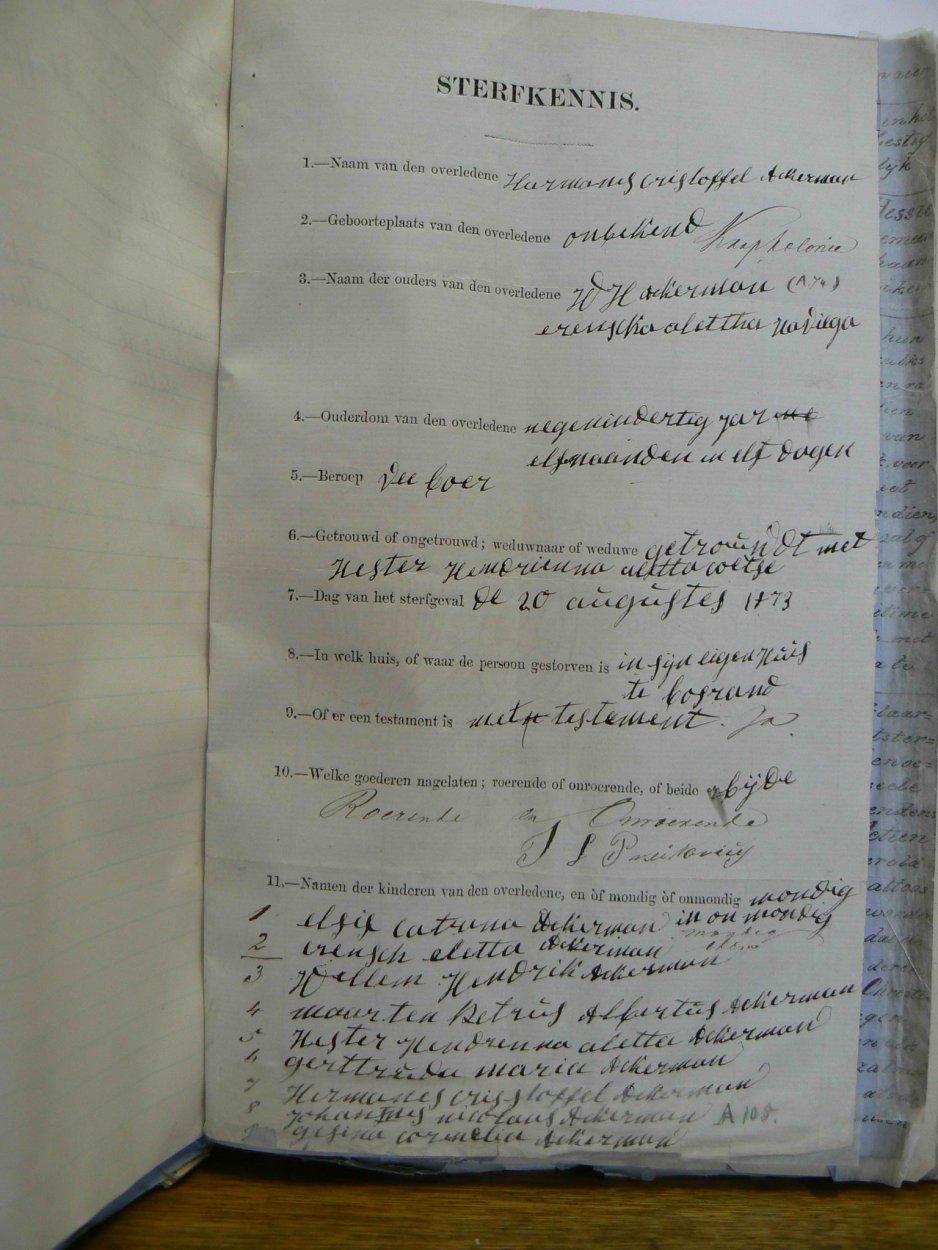 STERFKENNIS.
1.—Naam van den overledene Hermanes cristoffel Ackerman
2.—Geboorteplaats van den overledene onbekend Kaapkolonie
3.—Naam der ouders van den overledene W H Ackerman
erenscha alettha
4.—Ouderdom van den overledene negenindertig jar
elf maanden en elf dagen
5.—Beroep Vee boer
6.—Getrouwd of ongetrouwd; weduwnaar of weduwe getrouwdt met
Hester Hendrienna aletta coetse
7.—Dag van het sterfgeval de 20 augustes 1873
8.—In welk huis, of waar de persoon gestorven is in syn eigen Huis
te bosrand
9.—Of er een testament is met testement. Ja
10.—Welke goederen nagelaten; roerende of onroerende, of beide byde
Roerende en Onroerende
11.—Namen der kinderen van den overledene, en òf mondig òf onmondig mondig
1 elsie catrona Ackerman in onmondig
2 erensch eletta Ackerman mondig
3 Willem Hendrik Ackerman
4 maarten Petrus Albertus Ackerman
5 Hester Hendrenna aletta Ackerman
6 gerttruda maria Ackerman
7 Hermanes crisstoffel Ackerman
8 johannes nicolaas Ackerman A 108.
9 gesina cornelia Ackerman